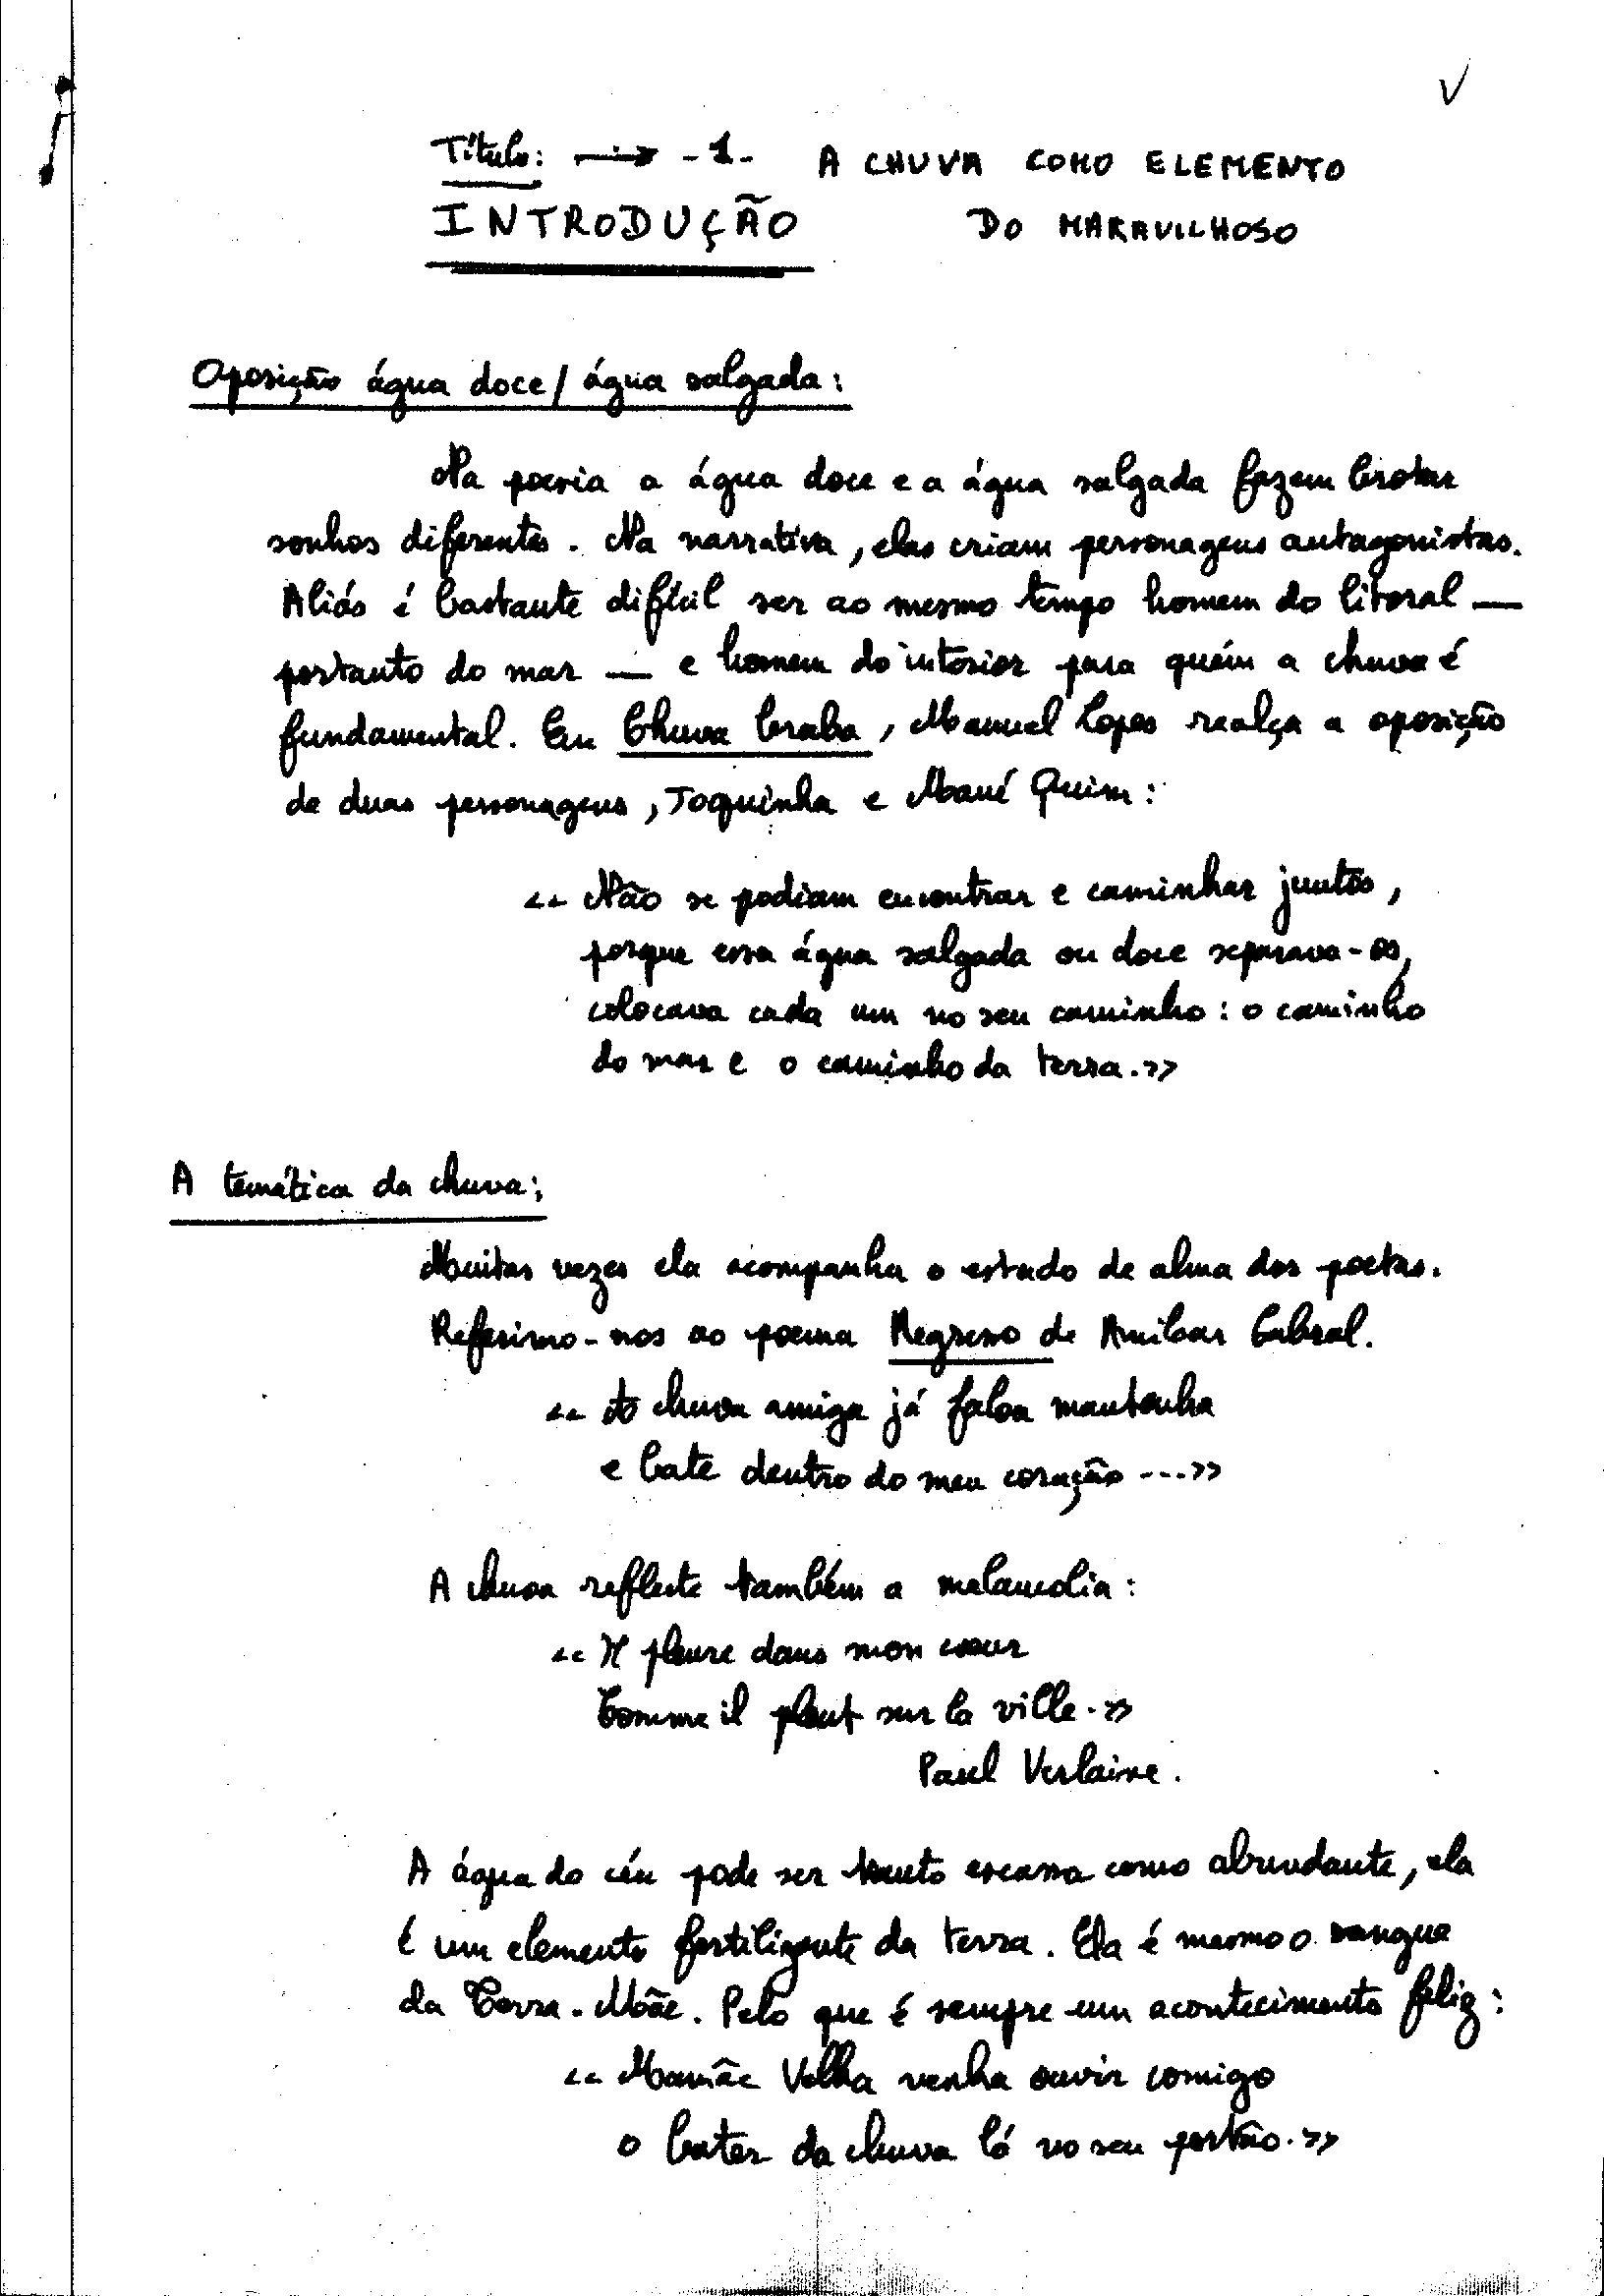 V
Título: → -1- A CHUVA COMO ELEMENTO
INTRODUÇÃO DO MARAVILHOSO
Oposição água doce / água salgada:
Na poesia a água doce e a água salgada fazem brotar
sonhos diferentes. Na narrativa, elas criam personagens antagonistas.
Aliás é bastante difícil ser ao mesmo tempo homem do litoral —
portanto do mar — e homem do interior para quém a chuva é
fundamental. Em Chuva braba, Manuel Lopes realça a oposição
de duas personagens, Joquinha e Mané Quim:
<< Não se podiam encontrar e caminhar juntos,
porque essa água salgada ou doce separava-os,
colocava cada um no seu caminho: o caminho
do mar e o caminho da terra.>>
A temática da chuva:
Muitas vezes ela acompanha o estado de alma dos poetas.
Referimo-nos ao poema Regresso de Amilcar Cabral.
<< A chuva amiga já falou mantenha
e bate dentro do meu coração ...>>
A chuva reflecte também a melancolia:
<< Il pleure dans mon coeur
Comme il pleut sur la ville.>>
Paul Verlaine.
A água do céu pode ser tanto escassa como abundante, ela
é um elemento fertilizante da terra. Ela é mesmo o sangue
da Terra-Mãe. Pelo que é sempre um acontecimento feliz:
<< Mamãe Velha venha ouvir comigo
o bater da chuva lá no seu portão.>>